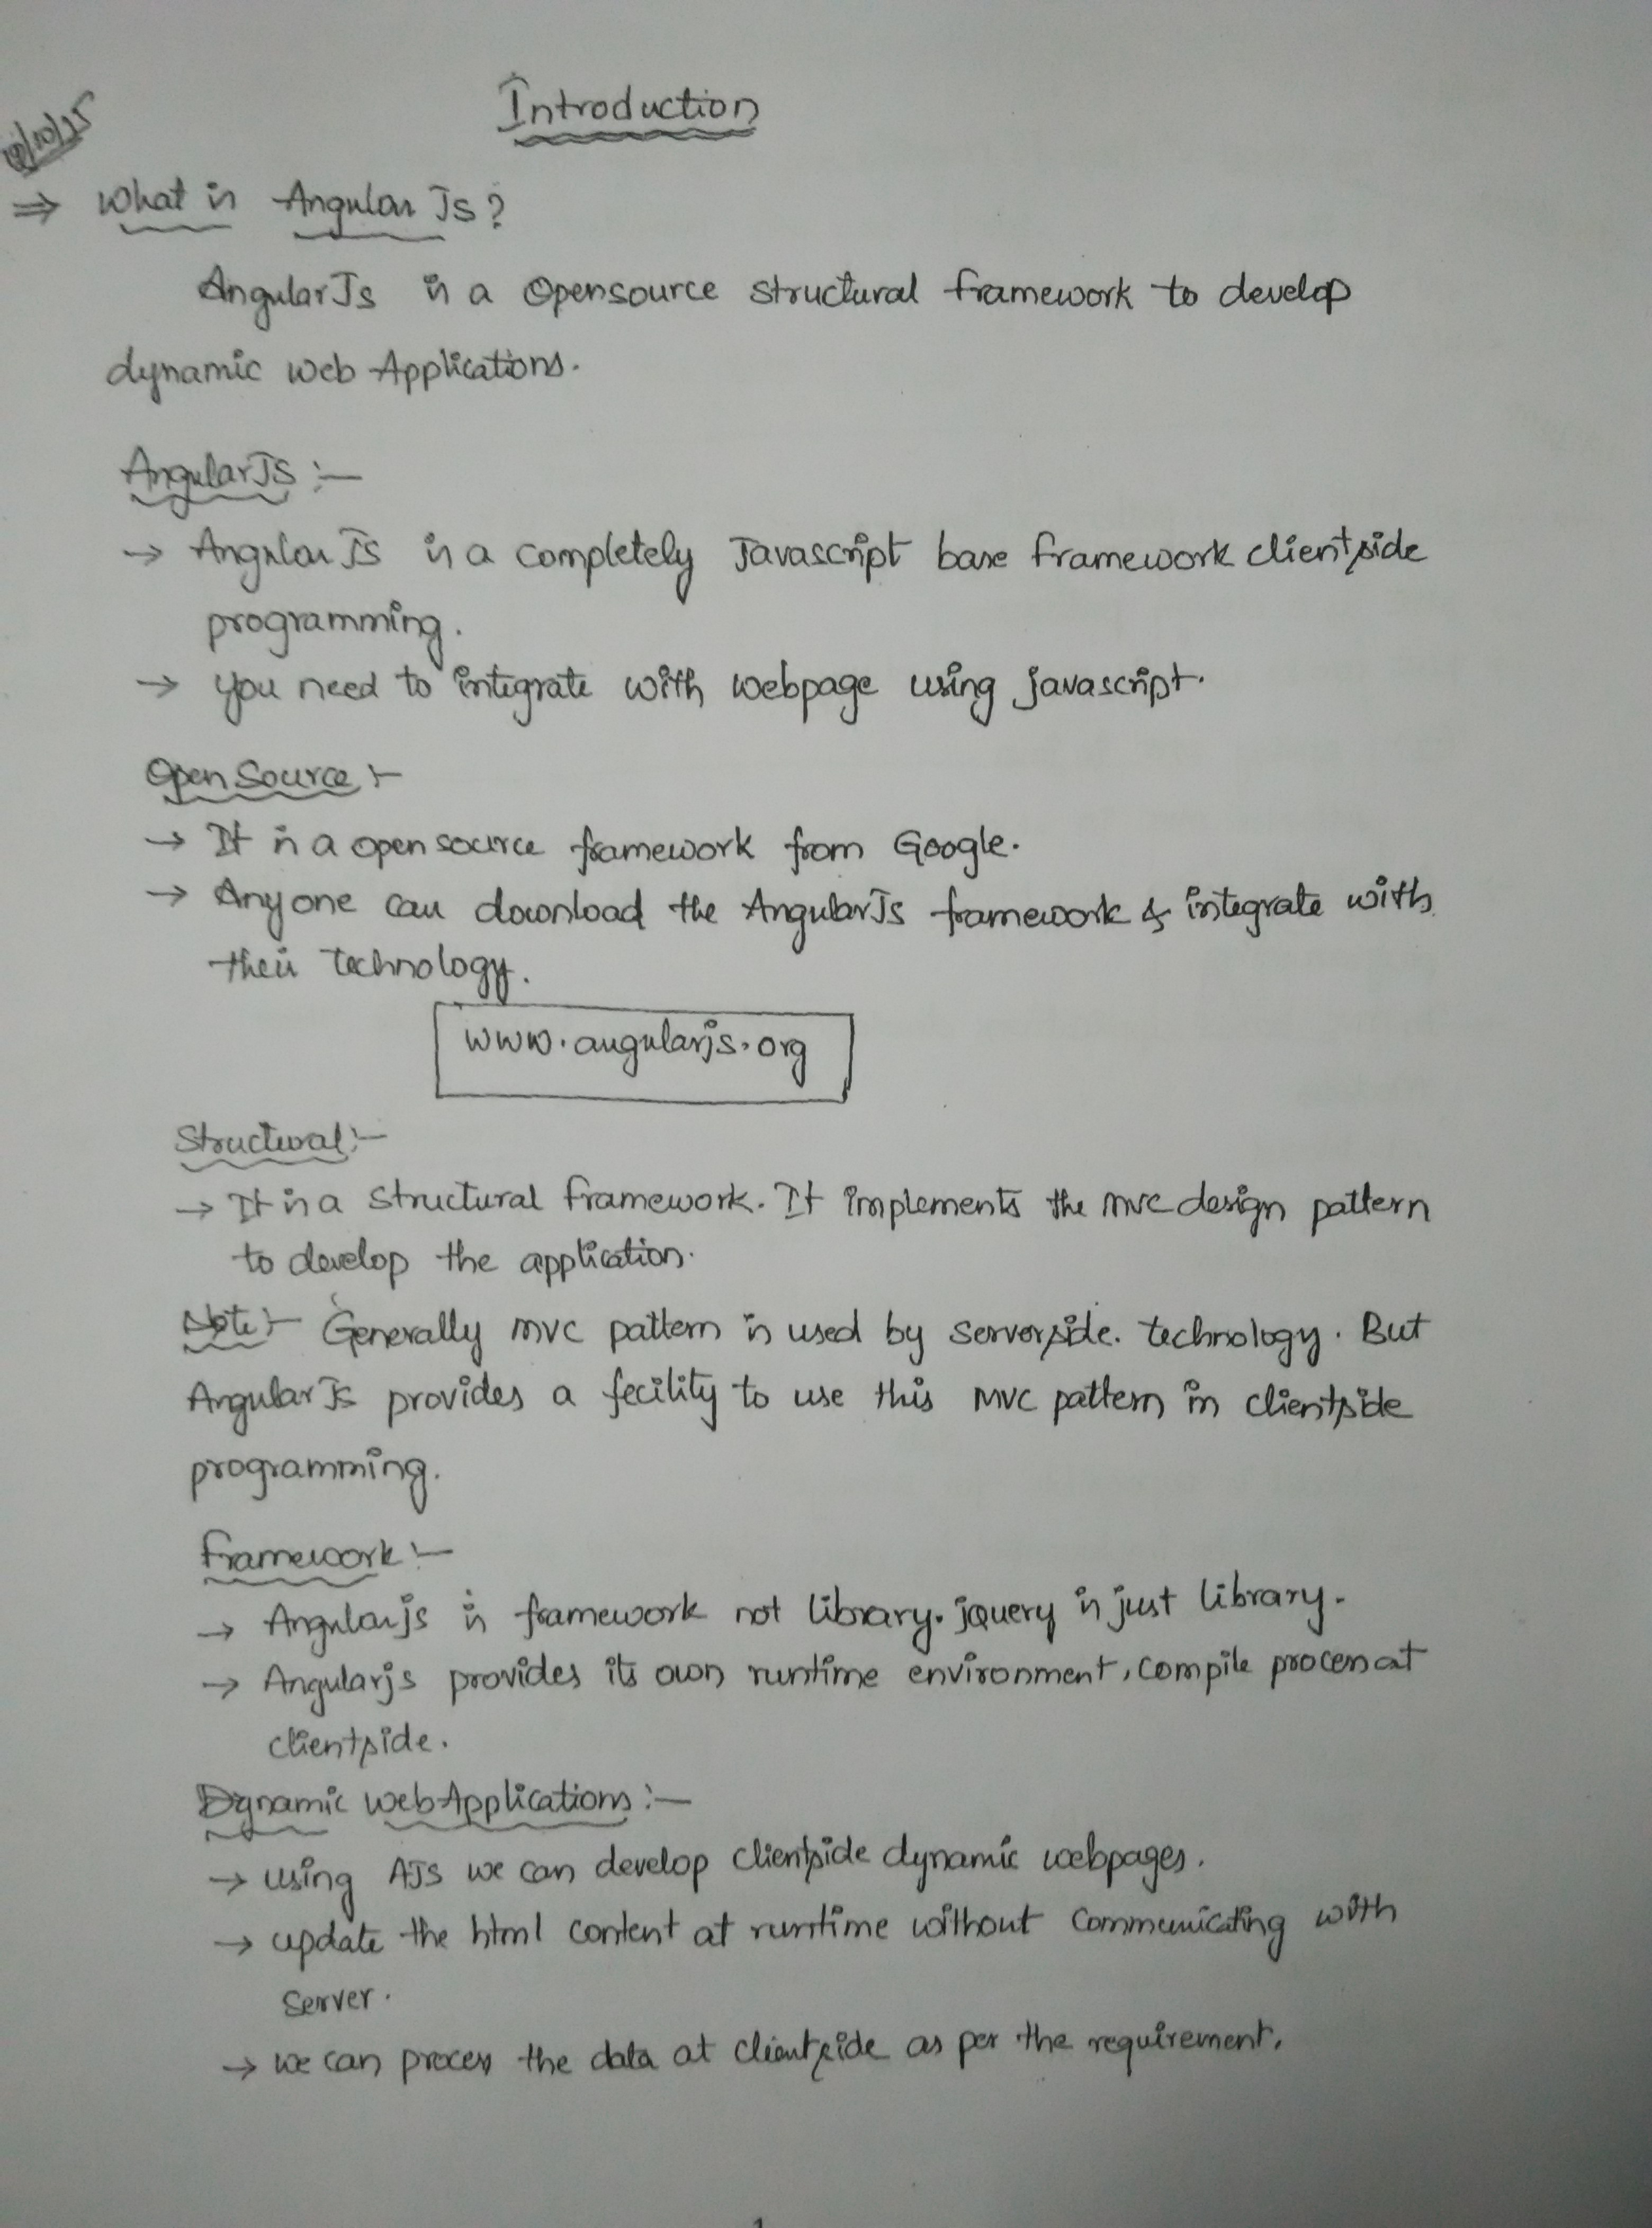 Introduction
/10/25
⇒ What is Angular Js?
AngularJs is a Opensource structural framework to develop
dynamic web Applications.
AngularJS :-
→ AngularJs is a completely Javascript base framework clientside
programming.
→ you need to integrate with webpage using javascript.
Open Source :-
→ It is a open source framework from Google.
→ Anyone can download the AngularJs framework & integrate with
their technology.
www.angularjs.org
Structural :-
→ It is a structural framework. It implements the mvc design pattern
to develop the application.
Note :- Generally mvc pattern is used by serverside. technology. But
AngularJs provides a fecility to use this MVC pattern in clientside
programming.
framework :-
→ Angularjs is framework not library. jquery is just library.
→ Angularjs provides its own runtime environment, compile process at
clientside.
Dynamic web Applications :-
→ using AJS we can develop clientside dynamic webpages.
→ update the html content at runtime without communicating with
server.
→ we can process the data at clientside as per the requirement.